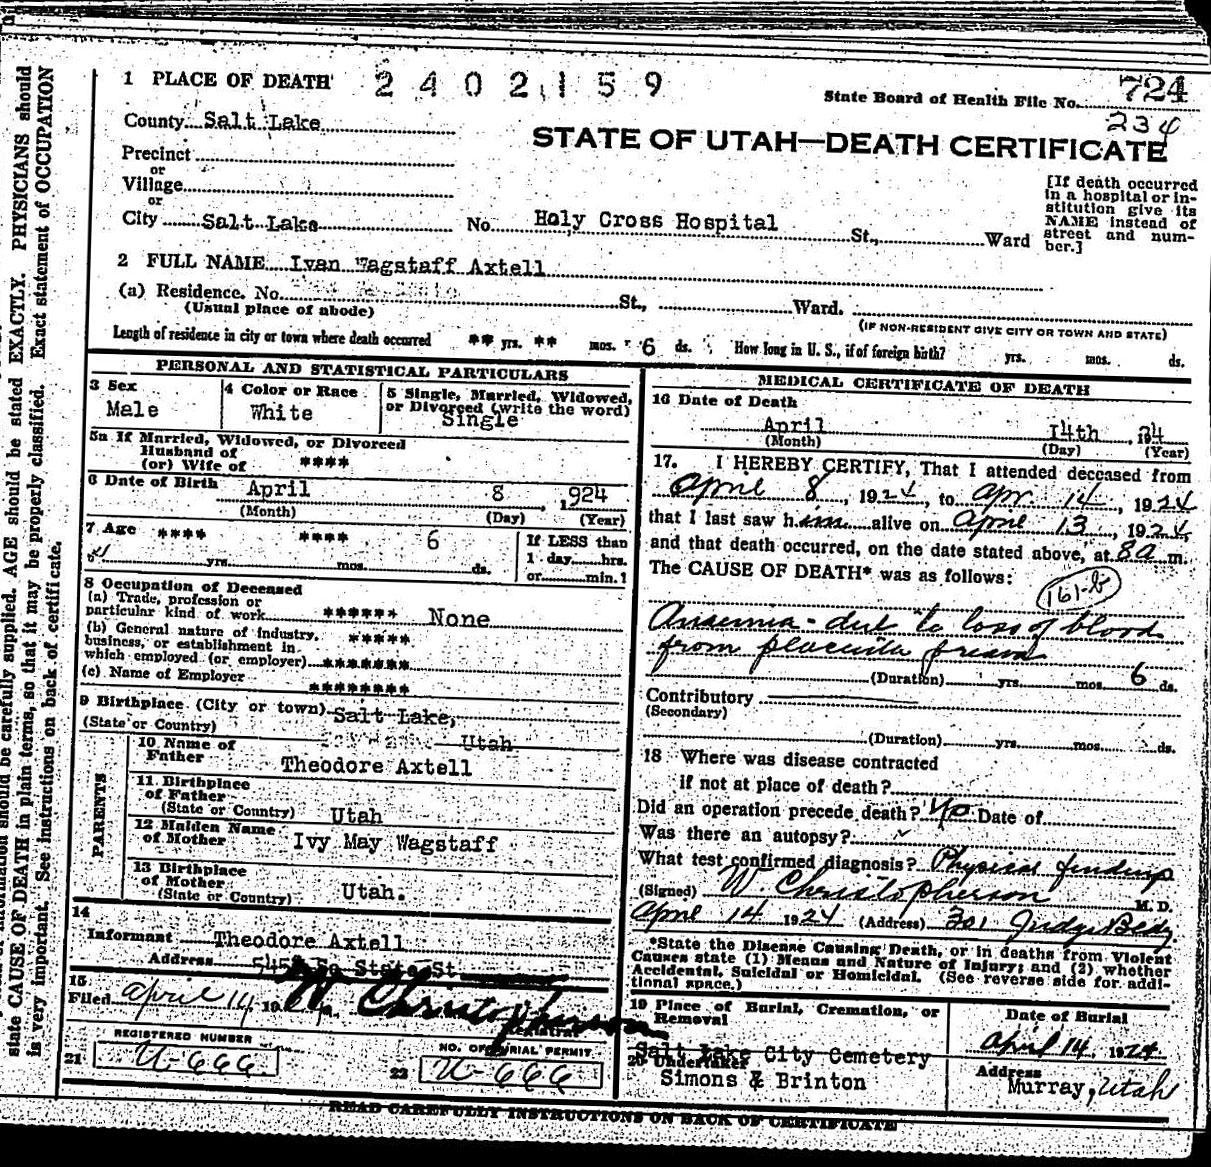 1 PLACE OF DEATH 2402159
State Board of Health File No. 724
234
County Salt Lake
STATE OF UTAH—DEATH CERTIFICATE
Precinct
or
Village
or
City Salt Lake No. Holy Cross Hospital St., Ward
[If death occurred
in a hospital or in-
stitution give its
NAME instead of
street and num-
ber.]
2 FULL NAME Ivan Wagstaff Axtell
(a) Residence. No. St., Ward.
(Usual place of abode)
(IF NON-RESIDENT GIVE CITY OR TOWN AND STATE)
Length of residence in city or town where death occurred ** yrs. ** mos. 6 ds. How long in U. S., if of foreign birth? yrs. mos. ds.
PERSONAL AND STATISTICAL PARTICULARS
3 Sex
Male
4 Color or Race
White
5 Single, Married, Widowed,
or Divorced (write the word)
Single
5a If Married, Widowed, or Divorced
Husband of
(or) Wife of ****
6 Date of Birth April 8 , 1924
(Month) (Day) (Year)
7 Age **** **** 6
yrs. mos. ds.
If LESS than
1 day hrs.
or min.?
8 Occupation of Deceased
(a) Trade, profession or
particular kind of work ****** None
(b) General nature of industry,
business, or establishment in *****
which employed (or employer) *******
(c) Name of Employer ********
9 Birthplace (City or town) Salt Lake,
(State or Country) Utah
PARENTS
10 Name of
Father Theodore Axtell
11 Birthplace
of Father
(State or Country) Utah
12 Maiden Name
of Mother Ivy May Wagstaff
13 Birthplace
of Mother
(State or Country) Utah.
14
Informant Theodore Axtell
Address So State St
15
Filed April 14 1924 W Christopherson
Registrar
REGISTERED NUMBER
21 U-666
NO. OF BURIAL PERMIT
22 U-666
MEDICAL CERTIFICATE OF DEATH
16 Date of Death
April 14th , 1924
(Month) (Day) (Year)
17. I HEREBY CERTIFY, That I attended deceased from
April 8, 1924, to Apr. 14, 1924
that I last saw him alive on April 13, 1924,
and that death occurred, on the date stated above, at 8a m.
The CAUSE OF DEATH* was as follows:
161-b
Anaemia - due to loss of blood
from placenta
(Duration) yrs. mos. 6 ds.
Contributory
(Secondary)
(Duration) yrs. mos. ds.
18 Where was disease contracted
if not at place of death?
Did an operation precede death? No Date of
Was there an autopsy?
What test confirmed diagnosis? Physical findings
(Signed) W. Christopherson M. D.
April 14 1924 (Address) 301 Judge Bldg
*State the Disease Causing Death, or in deaths from Violent
Causes state (1) Means and Nature of Injury; and (2) whether
Accidental, Suicidal or Homicidal. (See reverse side for addi-
tional space.)
19 Place of Burial, Cremation, or
Removal
Salt Lake City Cemetery
Date of Burial
April 14, 1924
20 Undertaker
Simons & Brinton
Address
Murray, Utah
READ CAREFULLY INSTRUCTIONS ON BACK OF CERTIFICATE
information should be carefully supplied. AGE should be stated EXACTLY. PHYSICIANS should
state CAUSE OF DEATH in plain terms, so that it may be properly classified. Exact statement of OCCUPATION
is very important. See instructions on back of certificate.